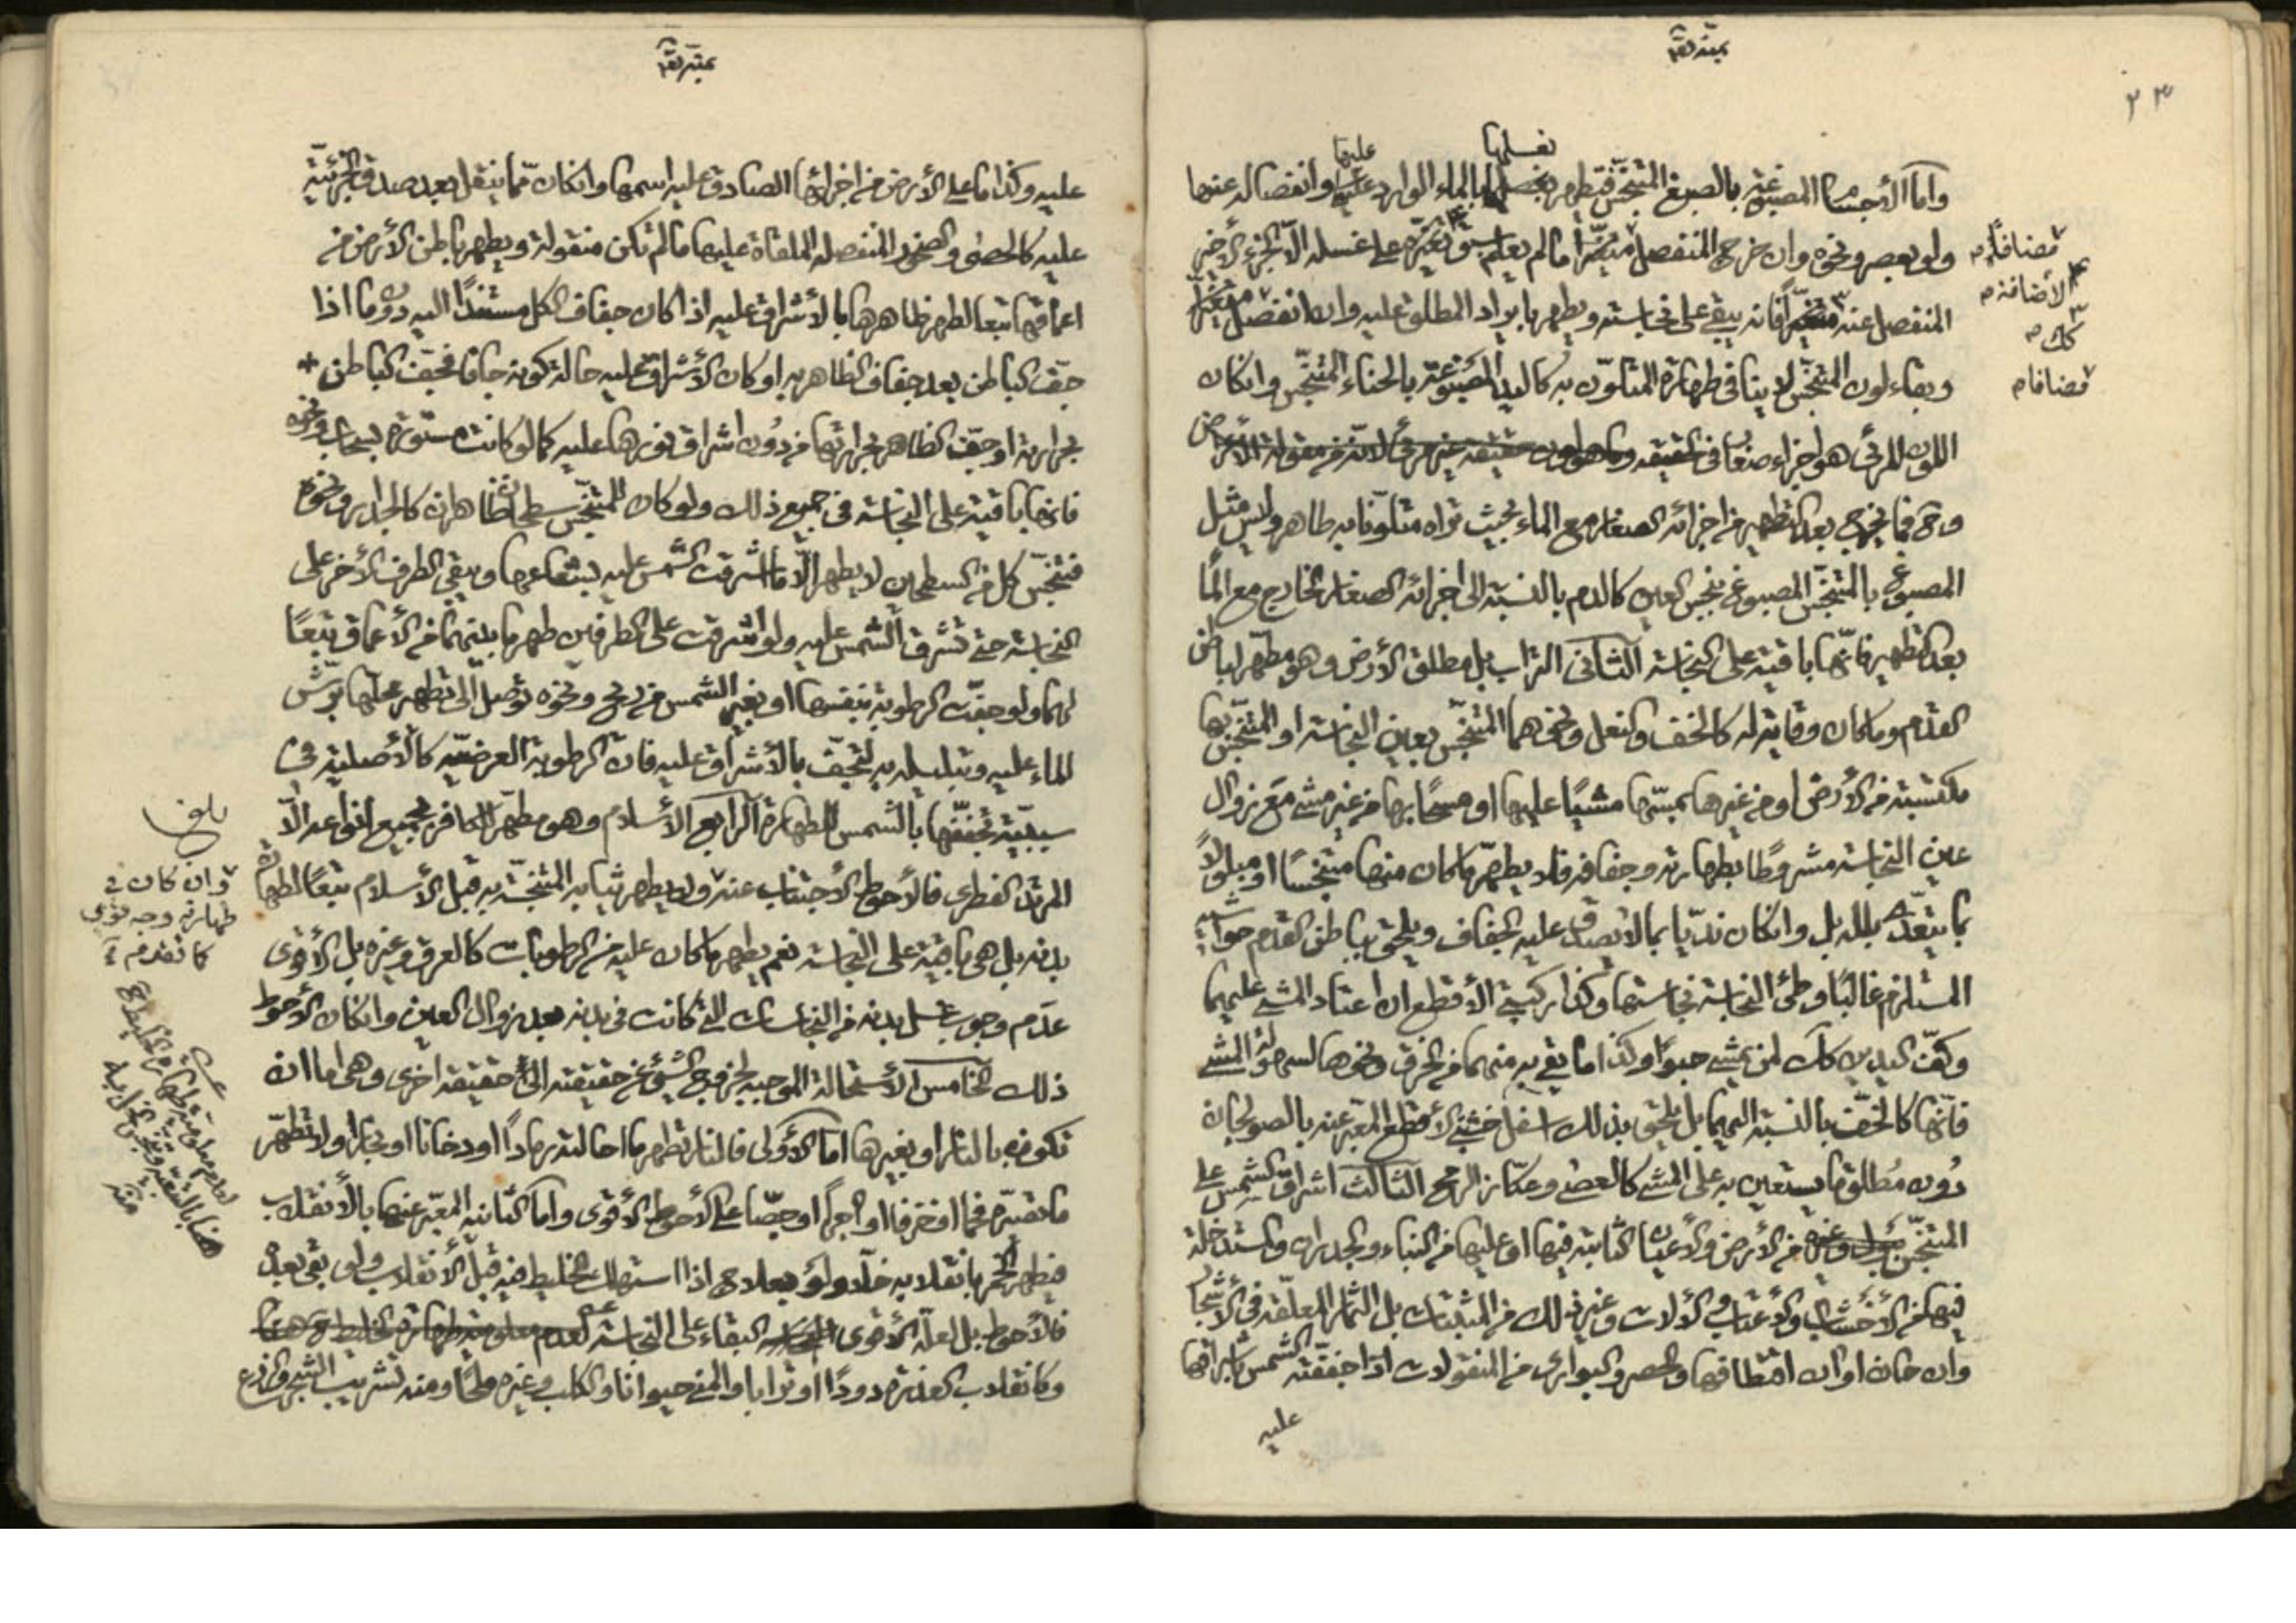 ٢٣
وامّا الأجسام المصبوغة بالصبغ المتنجّس فتطهر بغسلها بالماء الوارد عليها وانفصاله عنها
بغسلها
عليها
ولو بعصر ونحوه وان خرج المنفصل متغيّراً ما لم يعلم سبق تغيّره على غسله الّا الجزء الأخير
المنفصل عنه متغيّراً فانه يبقى على نجاسته ويطهر بايراد المطلق عليه وان انفصل متغيّراً
وبقاء لون المتنجّس لا ينافي طهارة المتلوّن به كاليد المصبوغة بالحناء المتنجّس وانكان
اللون المرئى هو اجزاء صغار في الحقيقة
وح فما يخرج بعد التطهير من اجزائه الصغار مع الماء بحيث تراه متلوّنا به طاهر وليس مثل
المصبوغ بالمتنجّس المصبوغ بنجس العين كالدم بالنسبة الى اجزائه الصغار الخارج مع الماء
بعد التطهير فانّها باقية على النجاسة الثاني التراب بل مطلق الأرض وهو مطهّر لباطن
القدم وما كان وقاية له كالخف والنعل ونحوهما المتنجّس بعين النجاسة او المتنجّس بها
مكتسبة من الأرض او من غيرها بمسّها مشياً عليها او مسحاً بها من غير مشى مع زوال
عين النجاسة مشروطاً بطهارته وجفافه فلا يطهّر ما كان منها متنجّساً او مبلولاً
بما يتعدّى بلله بل وانكان نديّا بما لا يصدق عليه الجفاف ويلحق بباطن القدم حواشيه
المستلزم غالبا وطئ النجاسة نجاستها وكذا ركبتي الأقطع ان اعتاد المشي عليهما
وكفّ اليدين كك لمن يمشي حبواً وكذا ما يقي به منهما من الخرق ونحوها لسهولة المشي
فانّها كالخفّ بالنسبة اليهما بل يلحق بذلك اسفل خشبة الأقطع المعبّر عنه بالصولجان
دون مطلق ما يستعين به على المشي كالعصى وعكّاز الرمح الثالث اشراق الشمس على
المتنجّس من الأرض والأعيان الثابتة فيها او عليها من البناء والجدران والمستدخلة
فيها من الأخشاب والأعتاب والآلات وغير ذلك من المثبتات بل الثمار المعلّقة في الأشجار
وان حان اوان اقتطافها والحصر والبواري من المنقولات اذا جفّفته الشمس باشراقها
عليه
مضافاً م
الاضافة م
كك م
مضافا م
عليه وكذا ما على الأرض من اجزائها الصادق عليه اسمها وانكان ممّا ينقل بعد صدق الجزئيّة
عليه كالحصى والصخور المنفصلة الملقاة عليها ما لم تكن منقولة ويطهر باطن الأرض من
اعماقها تبعا لطهر ظاهرها بالاشراق عليه اذا كان جفاف الكل مستنداً اليه دون ما اذا
جفّ الباطن بعد جفاف الظاهر به او كان الأشراق عليه حالة كونه جافا فجفّف الباطن
بحرارته او جفّ الظاهر بحرارتها من دون اشراق نورها عليه كما لو كانت مستورة بسحاب ونحوه
فانها باقية على النجاسة في جميع ذلك ولو كان للمتنجّس سطحان ظاهران كالجدار ونحوه
فتنجّس كل من السطحين لا يطهر الّا ما اشرقت الشمس عليه بشعاعها ويبقى الطرف الأخر على
النجاسة حتى تشرق الشمس عليه ولو اشرقت على الطرفين طهر ما بينهما من الأعماق تبعاً
لهما ولو جفّت الرطوبة بنفسها او بغير الشمس من ريح ونحوه توصّل الى تطهر محلّها برشّ
الماء عليه وتبليله به لتجفّ بالأشراق عليه فان الرطوبة العرضيّة كالأصلية في
سببيّة تجفّفها بالشمس للطهارة الرابع الأسلام وهو مطهّر للكافر بجميع انواعه الّا
المرتدّ الفطرى فالأحوط الأجتناب عنه ولا يطهر ثيابه المتنجّسة به قبل الأسلام تبعاً لطهارة
بدنه بل هي باقية على النجاسة نعم يطهر ما كان عليه من الرطوبات كالعرق وغيره بل الأقوى
عدم وجوب غسل بدنه من النجاسات التي كانت في بدنه بعد زوال العين وانكان الأحوط
ذلك الخامس الأستحالة الموجبة لخروج الشيء عن حقيقته الى حقيقة اخرى وهي اما ان
تكون بالنار او بغيرها اما الأولى فالنار تطهر ما احالته رماداً او دخانا او بخارا ولا تطهّر
ما تصيّره فحما او خزفا او آجراً او جصّا على الأحوط الأقوى واما الثانية المعبّر عنها بالأنقلاب
فيطهر الخمر بانقلابه خلّا ولو بعلاج اذا استهلك الخليط فيه قبل الأنقلاب ولو بقي بعده
فالأحوط بل لعلّه الأقوى البقاء على النجاسة
وكانقلاب العذرة دوداً او ترابا والمني حيوانا والكلب وغيره ملحا ومنه تشريب الشجر والزرع
بلغ
وان كان في
طهارته وجه قوى
كما تقدم